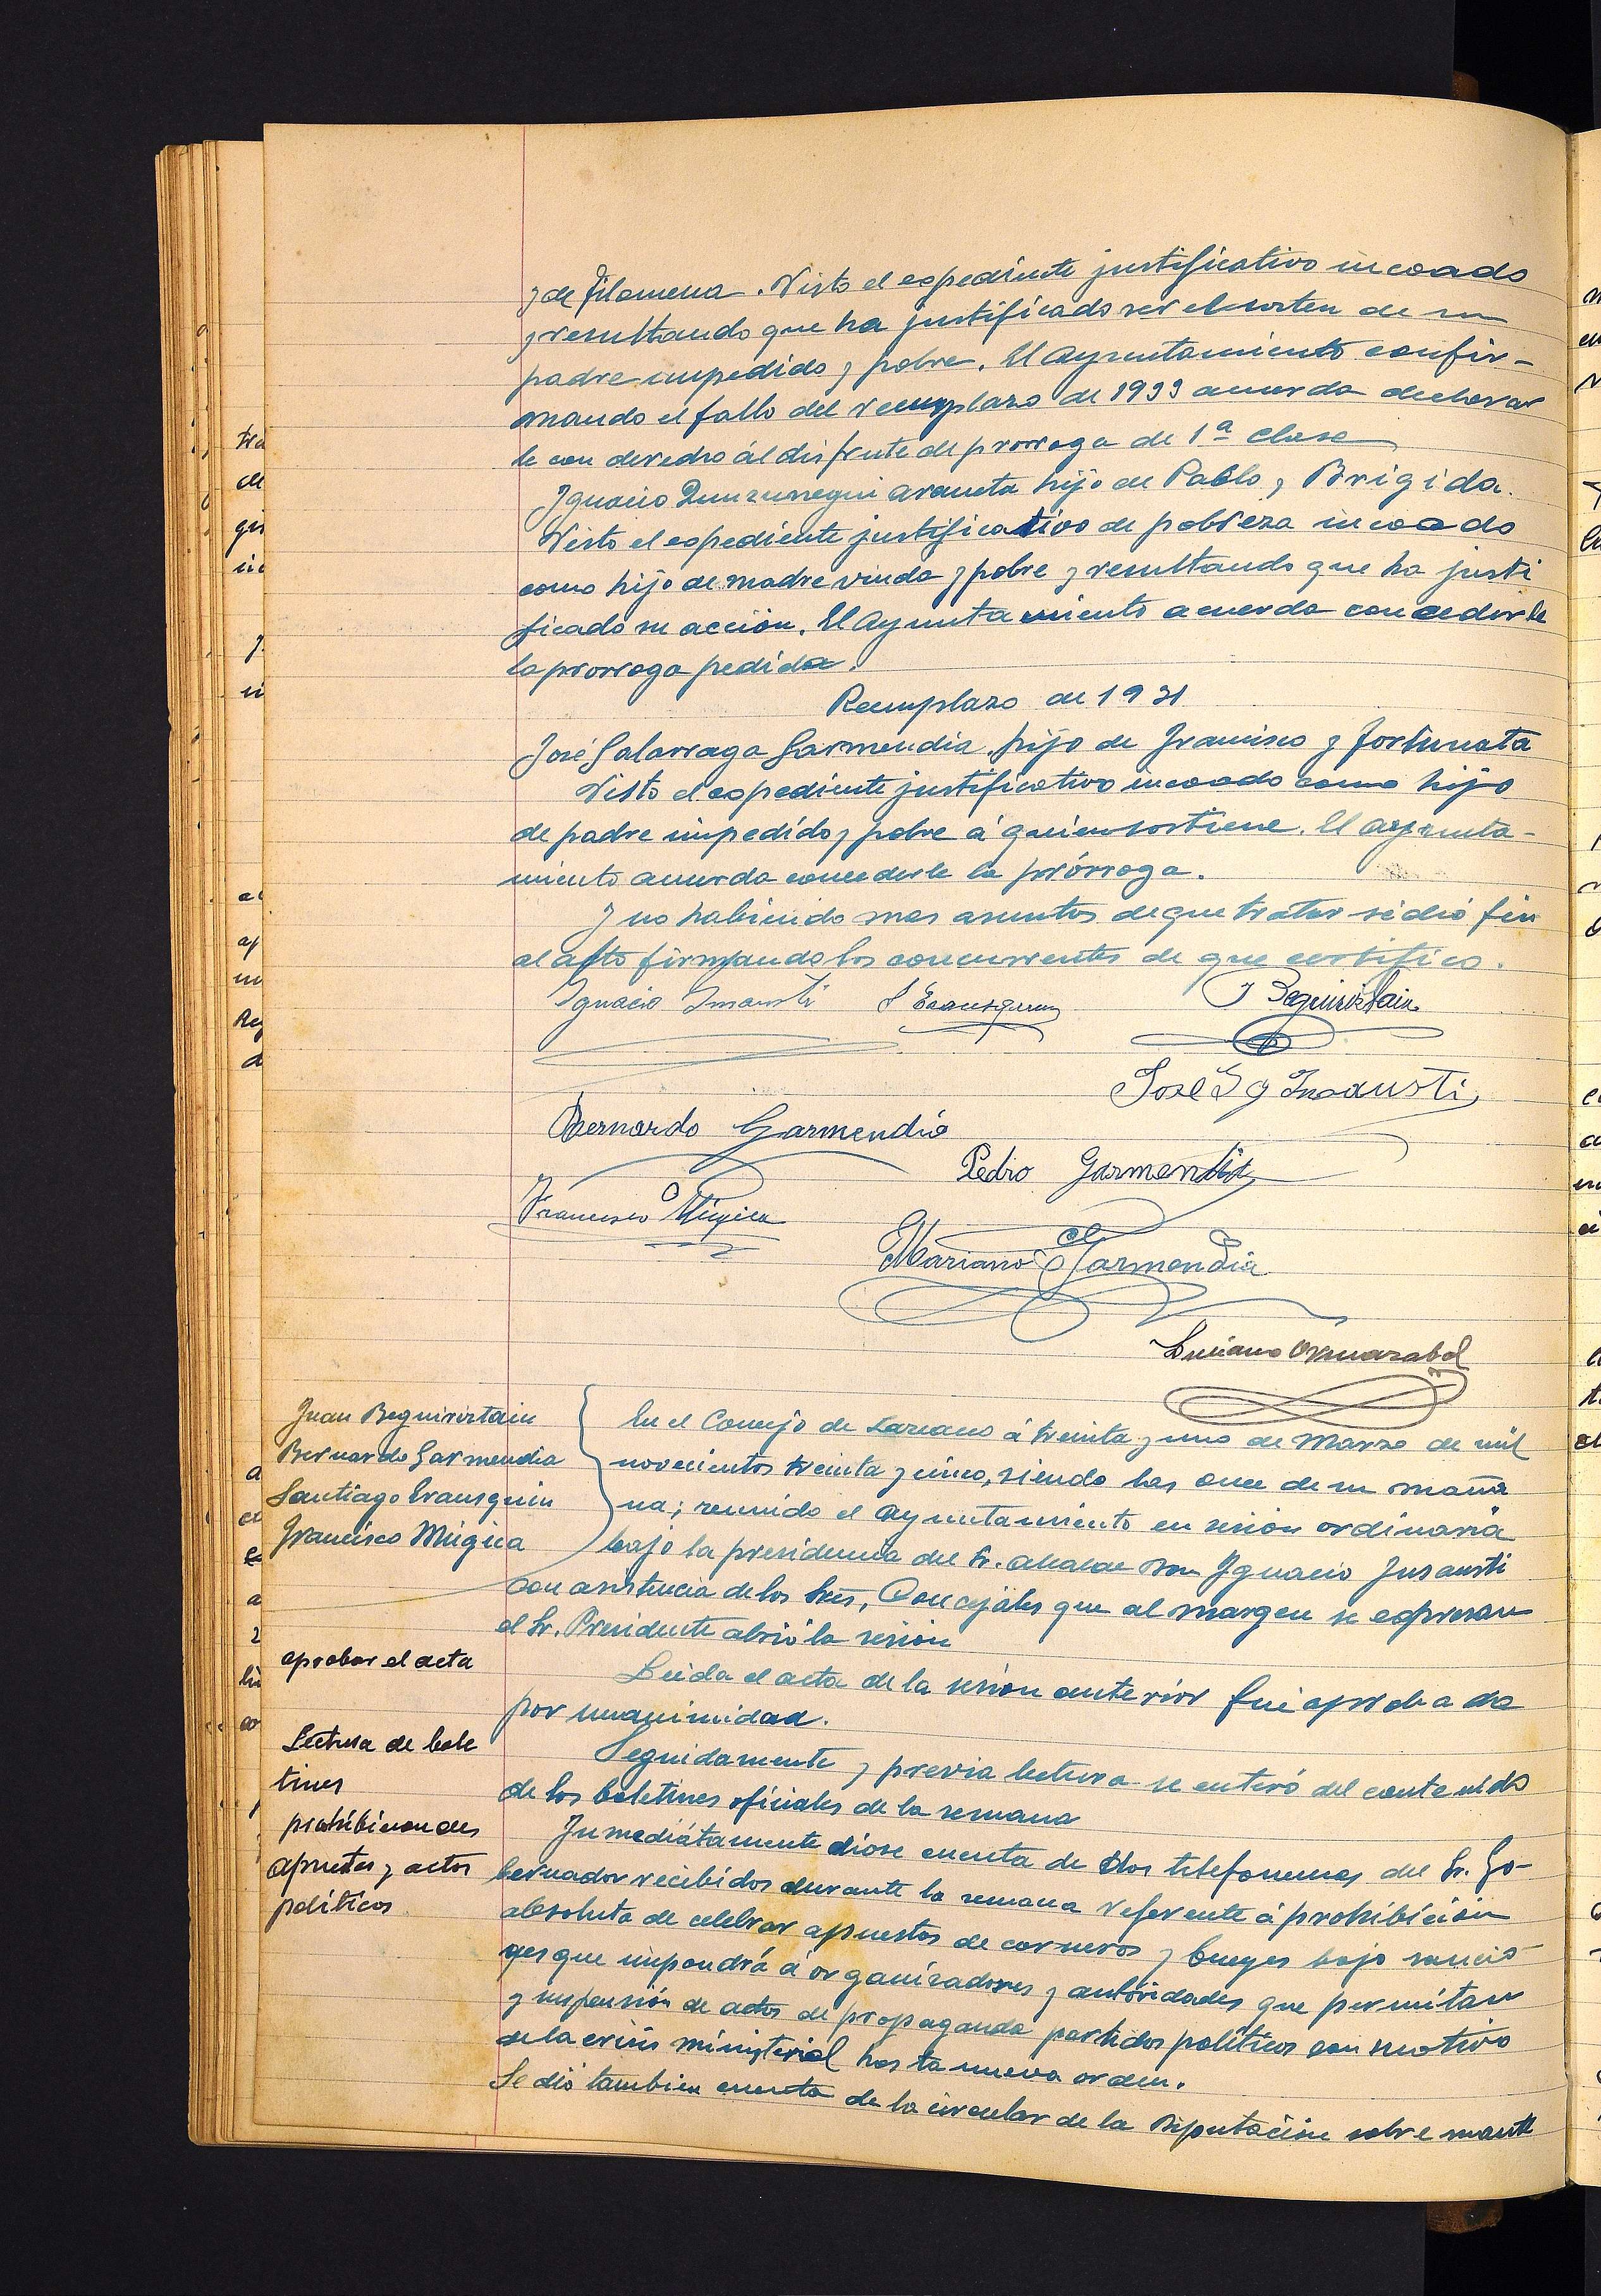 y de Filomena. Visto el espediente justificativo incoado
y resultando que ha justificado ser el sosten de su
padre impedido y pobre. El Ayuntamiento confir-
mando el fallo del reemplazo de 1933 acuerda declarar
le con derecho ál disfrute de prorroga de 1ª clase
Ignacio Zunzunegui Araneta hijo de Pablo y Brigida.
Visto el espediente justificativo de pobreza incoado
como hijo de madre viuda y pobre y resultando que ha justi
ficado su acción. El Ayuntamiento acuerda concederle
la prorroga pedida.
Reemplazo de 1931
José Galarraga Garmendia hijo de Francisco y Fortunata
Visto el espediente justificativo incoado como hijo
de padre impedido y pobre á quien sostiene. El Ayunta-
miento acuerda concederle la prórroga.
Y no habiendo mas asuntos de que tratar se dió fin
al acto firmando los concurrentes de que certifico.
Ignacio Insausti S Erausquin J Beguiristain
José Ig Insausti
Bernardo Garmendia
Pedro Garmendia
Francisco Múgica
Mariano Garmendia
Luciano Ormazabal
Juan Beguiristain
Bernardo Garmendia
Santiago Erausquin
Francisco Múgica
En el Concejo de Lazcano á treinta y uno de Marzo de mil
novecientos treinta y cinco, siendo las once de su maña
na; reunido el Ayuntamiento en sesion ordinaria
bajo la presidencia del Sr. Alcalde Don Ignacio Insausti
con asistencia de los Sres. Concejales que al margen se espresan
el Sr. Presidente abrió la sesión
aprobar el acta
Leida el acta de la sesion anterior fue aprobada
por unanimidad.
Lectura de bole
tines
Seguidamente y previa lectura se enteró del contenido
de los boletines oficiales de la semana
prohibicion de
apuestas y actos
políticos
Inmediátamente diose cuenta de dos telefonemas del Sr. Go-
bernador recibidos durante la semana referente á prohibición
absoluta de celebrar apuestas de carneros y bueyes bajo sancio-
nes que impondrá á organizadores y autoridades que permitan
y suspensión de actos de propaganda partidos políticos con motivo
de la crisis ministerial hasta nueva orden.
Se dió tambien cuenta de la circular de la Diputación sobre mante